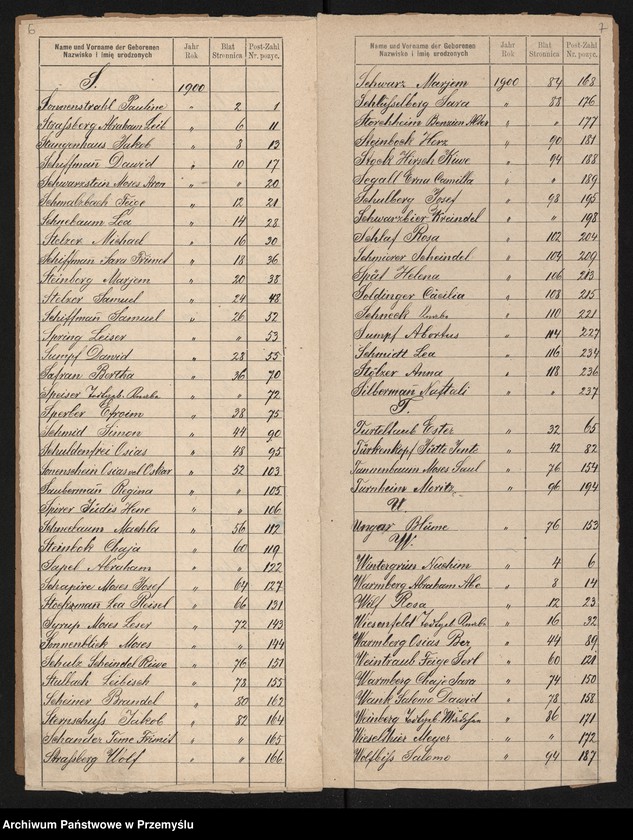 6
Name und Vorname der Geborenen Jahr Blat Post-Zahl
Nazwisko i imię urodzonych Rok Stronnica Nr. pozyc.
S. 1900
Sonnenstrahl Pauline 2 1
Straßberg Abraham Leib „ 6 11
Stungenhaus Jakob „ 8 13
Schiffmañ Dawid „ 10 17
Schwarzstein Moses Aron „ „ 20
Schmalzbach Feige „ 12 21
Schnebaum Lea „ 14 28
Stelzer Michael „ 16 30
Schiffman Sara „ 18 36
Steinberg Marjem „ 20 38
Stelzer Samuel „ 24 48
Schiffmañ Samuel „ 26 52
Spring Leiser „ „ 53
Sumpf Dawid „ 28 55
Safran Bertha „ 36 70
Speiser „ „ 72
Sperber Efroim „ 38 75
Schmid Simon „ 44 90
Schuldenfrei Osias „ 48 95
Sonenschein Osias vel Oskar „ 52 103
Saubermañ Regina „ „ 105
Spirer Jüdis Hene „ „ 106
Schnebaum Machla „ 56 112
Steinbok Chaja „ 60 119
Sapet Abraham „ „ 122
Schapire Moses Josef „ 64 127
Lea Reisel „ 66 131
Syrup Moses Leser „ 72 143
Sonnenblick Moses „ „ 144
Schulz Scheindel Riwe „ 76 151
Stallach Leibisch „ 78 155
Scheiner Brandel „ 80 162
Sternschuss Jakob „ 82 164
Schander Teme Frimit „ „ 165
Straßberg Wolf „ „ 166
7
Name und Vorname der Geborenen Jahr Blat Post-Zahl
Nazwisko i imię urodzonych Rok Stronnica Nr. pozyc.
Schwarz Marjem 1900 84 168
Schlüsselberg Sara „ 88 176
Storchheim Benzion „ „ 177
Steinbock Herz „ 90 181
Stock Hirsch „ 94 188
Segall Erna Camilla „ „ 189
Schulberg Josef „ 98 195
Schwarzbier Kreindel „ „ 198
Schlaf Rosa „ 102 204
Schmierer Scheindel „ 104 209
Spät Helena „ 106 213
Seldinger Cäcilia „ 108 215
Schneck „ 110 221
Sumpf Abortus „ 114 227
Schmidt Lea „ 116 234
Stölzer Anna „ 118 236
Silbermañ Naftali „ „ 237
T.
Turteltaub Ester „ 32 65
Türkenkopf Jütte Jente „ 42 82
Tannenbaum Moses Saul „ 76 154
Turnheim Moritz „ 96 194
U.
Ungar Blüme „ 76 153
W.
Wintergrün Nuchim „ 4 6
Warmberg Abraham Abe „ 8 14
Wilf Rosa „ 12 23
Wiesenfeld „ 16 32
Warmberg Osias Ber „ 44 89
Weintraub Feige Perl „ 60 121
Warmberg Chaje Sara „ 74 150
Wank Salomo Dawid „ 78 158
Weinberg „ 86 171
Wieselthier Meyer „ „ 172
Salomo „ 94 187
Archiwum Państwowe w Przemyślu